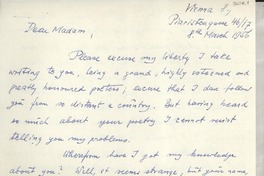 Vienna 8,
Piaristengasse 46/7
8th March 1956
Dear Madam,
Please excuse my liberty I take
writing to you, being a grand, highly esteemed and
greatly honoured poetess, excuse that I dare follow
you from so distant a country. But having heard
so much about your poetry I cannot resist
telling you my problems.
Wherefrom have I got my knowledge
about you? Well, it seems strange, but your name,